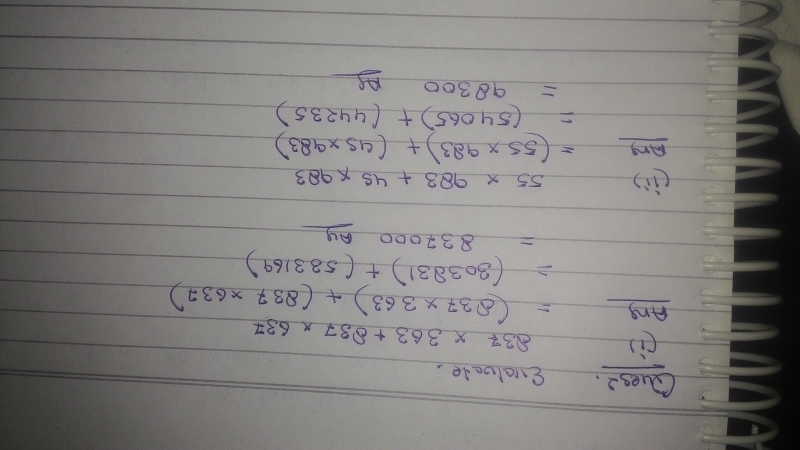 Ques2. Evaluate.
(i) 837 × 363 + 837 × 637
Ans = (837 × 363) + (837 × 637)
= (303831) + (533169)
= 837000 Ans
(ii) 55 × 983 + 45 × 983
Ans = (55 × 983) + (45 × 983)
= (54065) + (44235)
= 98300 Ans